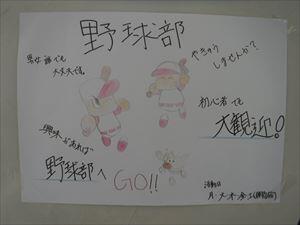 野球部
男女誰でも
大丈夫です
やきゅう
しませんか?
初心者でも
大観迎!
興味があれば
野球部へ GO!!
活動日